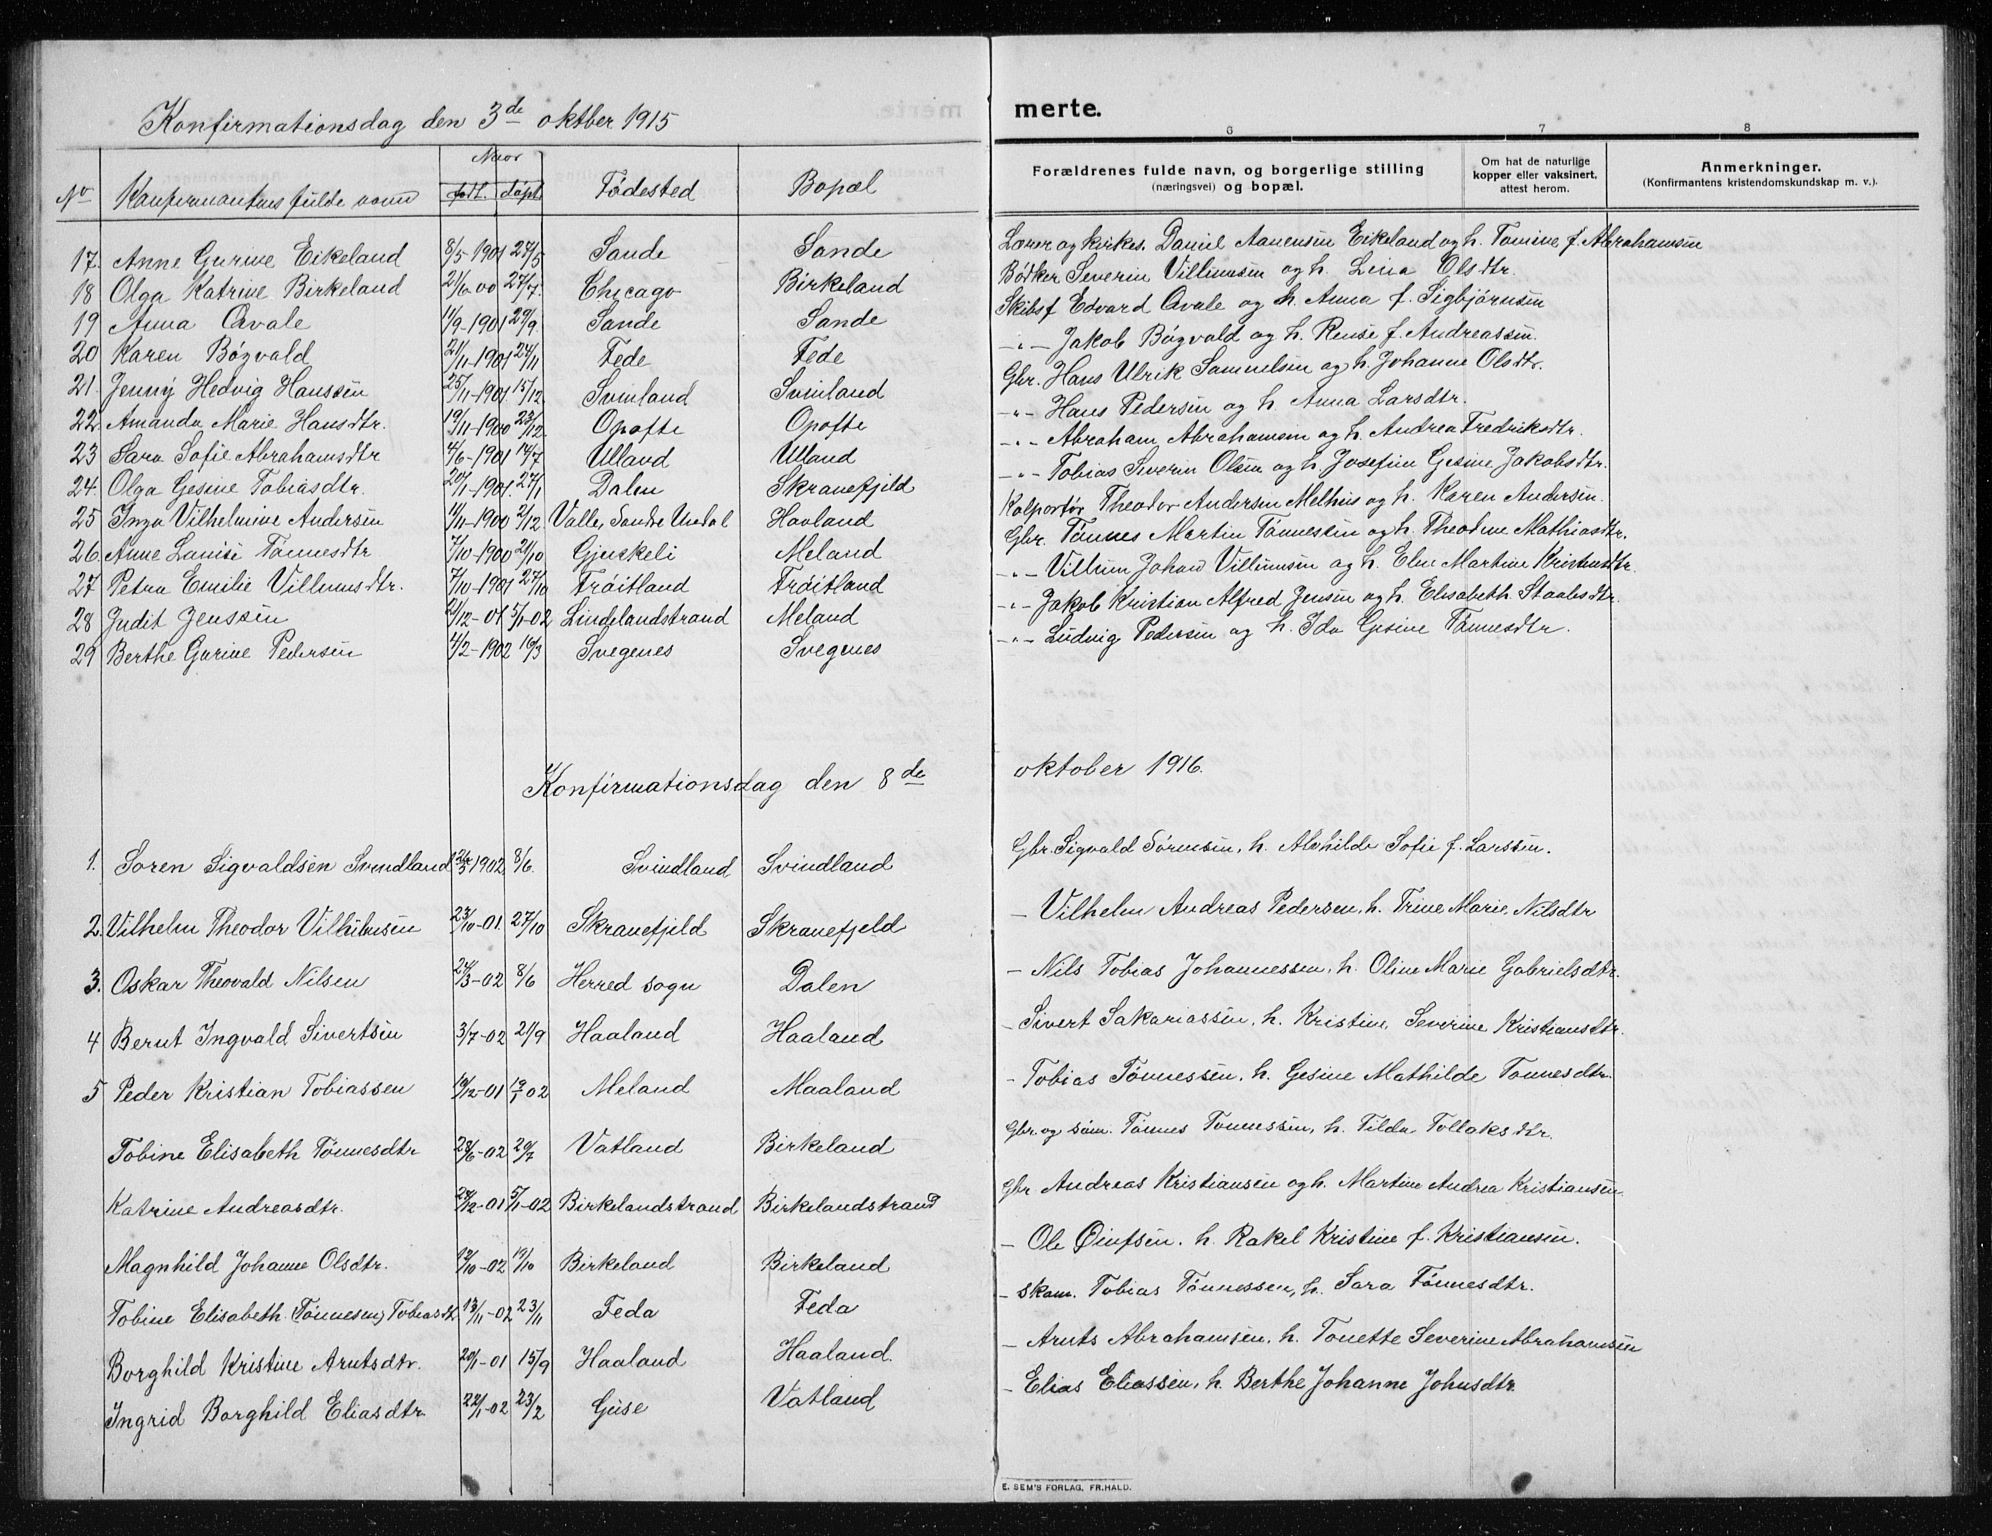 Konfirmationsdag den 3de oktber 1915
merte.
6 7 8
No Konfirmantens fulde navn Naar født. døpt Fødested Bopæl Forældrenes fulde navn, og borgerlige stilling (næringsvei) og bopæl. Om hat de naturlige kopper eller vaksinert, attest herom. Anmerkninger. (Konfirmantens kristendomskundskap m. v.).
17. Anne Gurine Eikeland 8/5-1901 27/5 Sande Sande Lærer og kirkes. Daniel Aanensen Eikeland og h. Tomine f. Abrahamsen
18 Olga Katrine Birkeland 21/6 00 27/7. Chicago Birkeland Bødker Severin Villumsen og h. Lina Olsdtr.
19 Anna Qvale 11/9-1901 29/9 Sande Sande Skibsf Edvard Qvale og h. Anna f. Sigbjørnsen
20 Karen Bøgvald 21/11-1901 24/11 Fede Fede -"- Jakob Bøgvald og h. Rense f. Andreassen.
21. Jenny Hedvig Hanssen 25/11-1901 15/12 Svinland Svinland Gbr. Hans Ulrik Samuelsen og h. Johanne Olsdtr.
22. Amanda Marie Hansdtr. 19/11-1900 23/12. Opofte Opofte -"- Hans Pedersen og h. Anna Larsdtr.
23 Sara Sofie Abrahamsdtr 4/6-1901 14/7 Ulland Ulland -"- Abraham Abrahamsen og h. Andrea Fredriksdtr.
24. Olga Gesine Tobiasdtr. 20/1-1901. 27/1 Dalen Skranefjeld -"- Tobias Severin Olsen og h. Josefine Gesine Jakobsdtr.
25 Inga Vilhelmine Andersen 11/11-1900 2/12 Valle, Søndre Undal Haaland Kolportør Theodor Andersen Melhus og h. Karen Andersen.
26. Anne Lovise Tønnesdtr. 7/10-1900 21/10 Gjuskeli Meland Gbr. Tønnes Martin Tønnessen og h. Theodine Mathiasdtr.
27 Petra Emilie Villumsdtr. 7/10-1901 27/10 Frøitland Frøitland -"- Villum Johan Villumsen og h. Eline Martine Kristensdtr.
28 Judit Jenssen 21/12-01 5/1-02 Lindelandstrand Meland -"- Jakob Kristian Alfred Jensen og h. Elisabeth Staalesdtr.
29 Berthe Gurine Pedersen 4/2-1902 16/3 Svegenes Svegenes -"- Ludvig Pedersen og h. Ida Gesine Tønnesdtr.
Konfirmationsdag den 8de oktober 1916.
1. Soren Sigvaldsen Svendland 1902 8/6. Svindland Svindland Gbr. Sigvald Sørensen, h. Alvhilde Sofie f. Larssen.
2. Vilhelm Theodor Vilhelmsen 23/10-01. 27/10 Skranefjeld Skranefjeld - Vilhelm Andreas Pedersen, h. Trine Marie Nilsdtr
3. Oskar Theovald Nilsen 24/3-02 8/6 Herred sogn Dalen - Nils Tobias Johannessen, h. Oline Marie Gabrielsdtr.
4 Bernt Ingvald Sivertsen 3/7-02 21/9 Haaland Haaland - Sivert Sakariassen, h. Kristine Severine Kristiansdtr.
5 Peder Kristian Tobiassen 19/12-01 19/1 02 Meland Maaland - Tobias Tønnessen, h. Gesine Mathilde Tønnesdtr.
Tobine Elisabeth Tønnesdtr 28/6-02 20/7 Vatland Birkeland Gbr. og søm. Tønnes Tønnessen, h. Tilda Tollaksdtr.
Katrine Andreasdtr. 29/12-01 5/1-02 Birkelandstrand Birkelandstrand Gbr Andreas Kristiansen og h. Martine Andrea Kristiansen
Magnhild Johanne Olsdtr. 12/10-02 19/10 Birkeland Birkeland - Ole Øiufsen. h. Rakel Kristine f. Kristiansen.
Tobine Elisabeth (Tønnesen) Tobiasdtr 13/11-02 23/11 Feda Feda - skom. Tobias Tønnessen, h. Sara Tønnesdtr.
Borghild Kristine Arntsdtr. 20/1-01 15/9 Haaland Haaland. - Arnts Abrahamsen, h. Tonette Severine Abrahamsen
Ingrid Borghild Eliasdtr. 22/1-02 23/2 Guse Vatland - Elias Eliassen, h. Berthe Johanne Johnsdtr.
E. SEM'S FORLAG, FR.HALD.